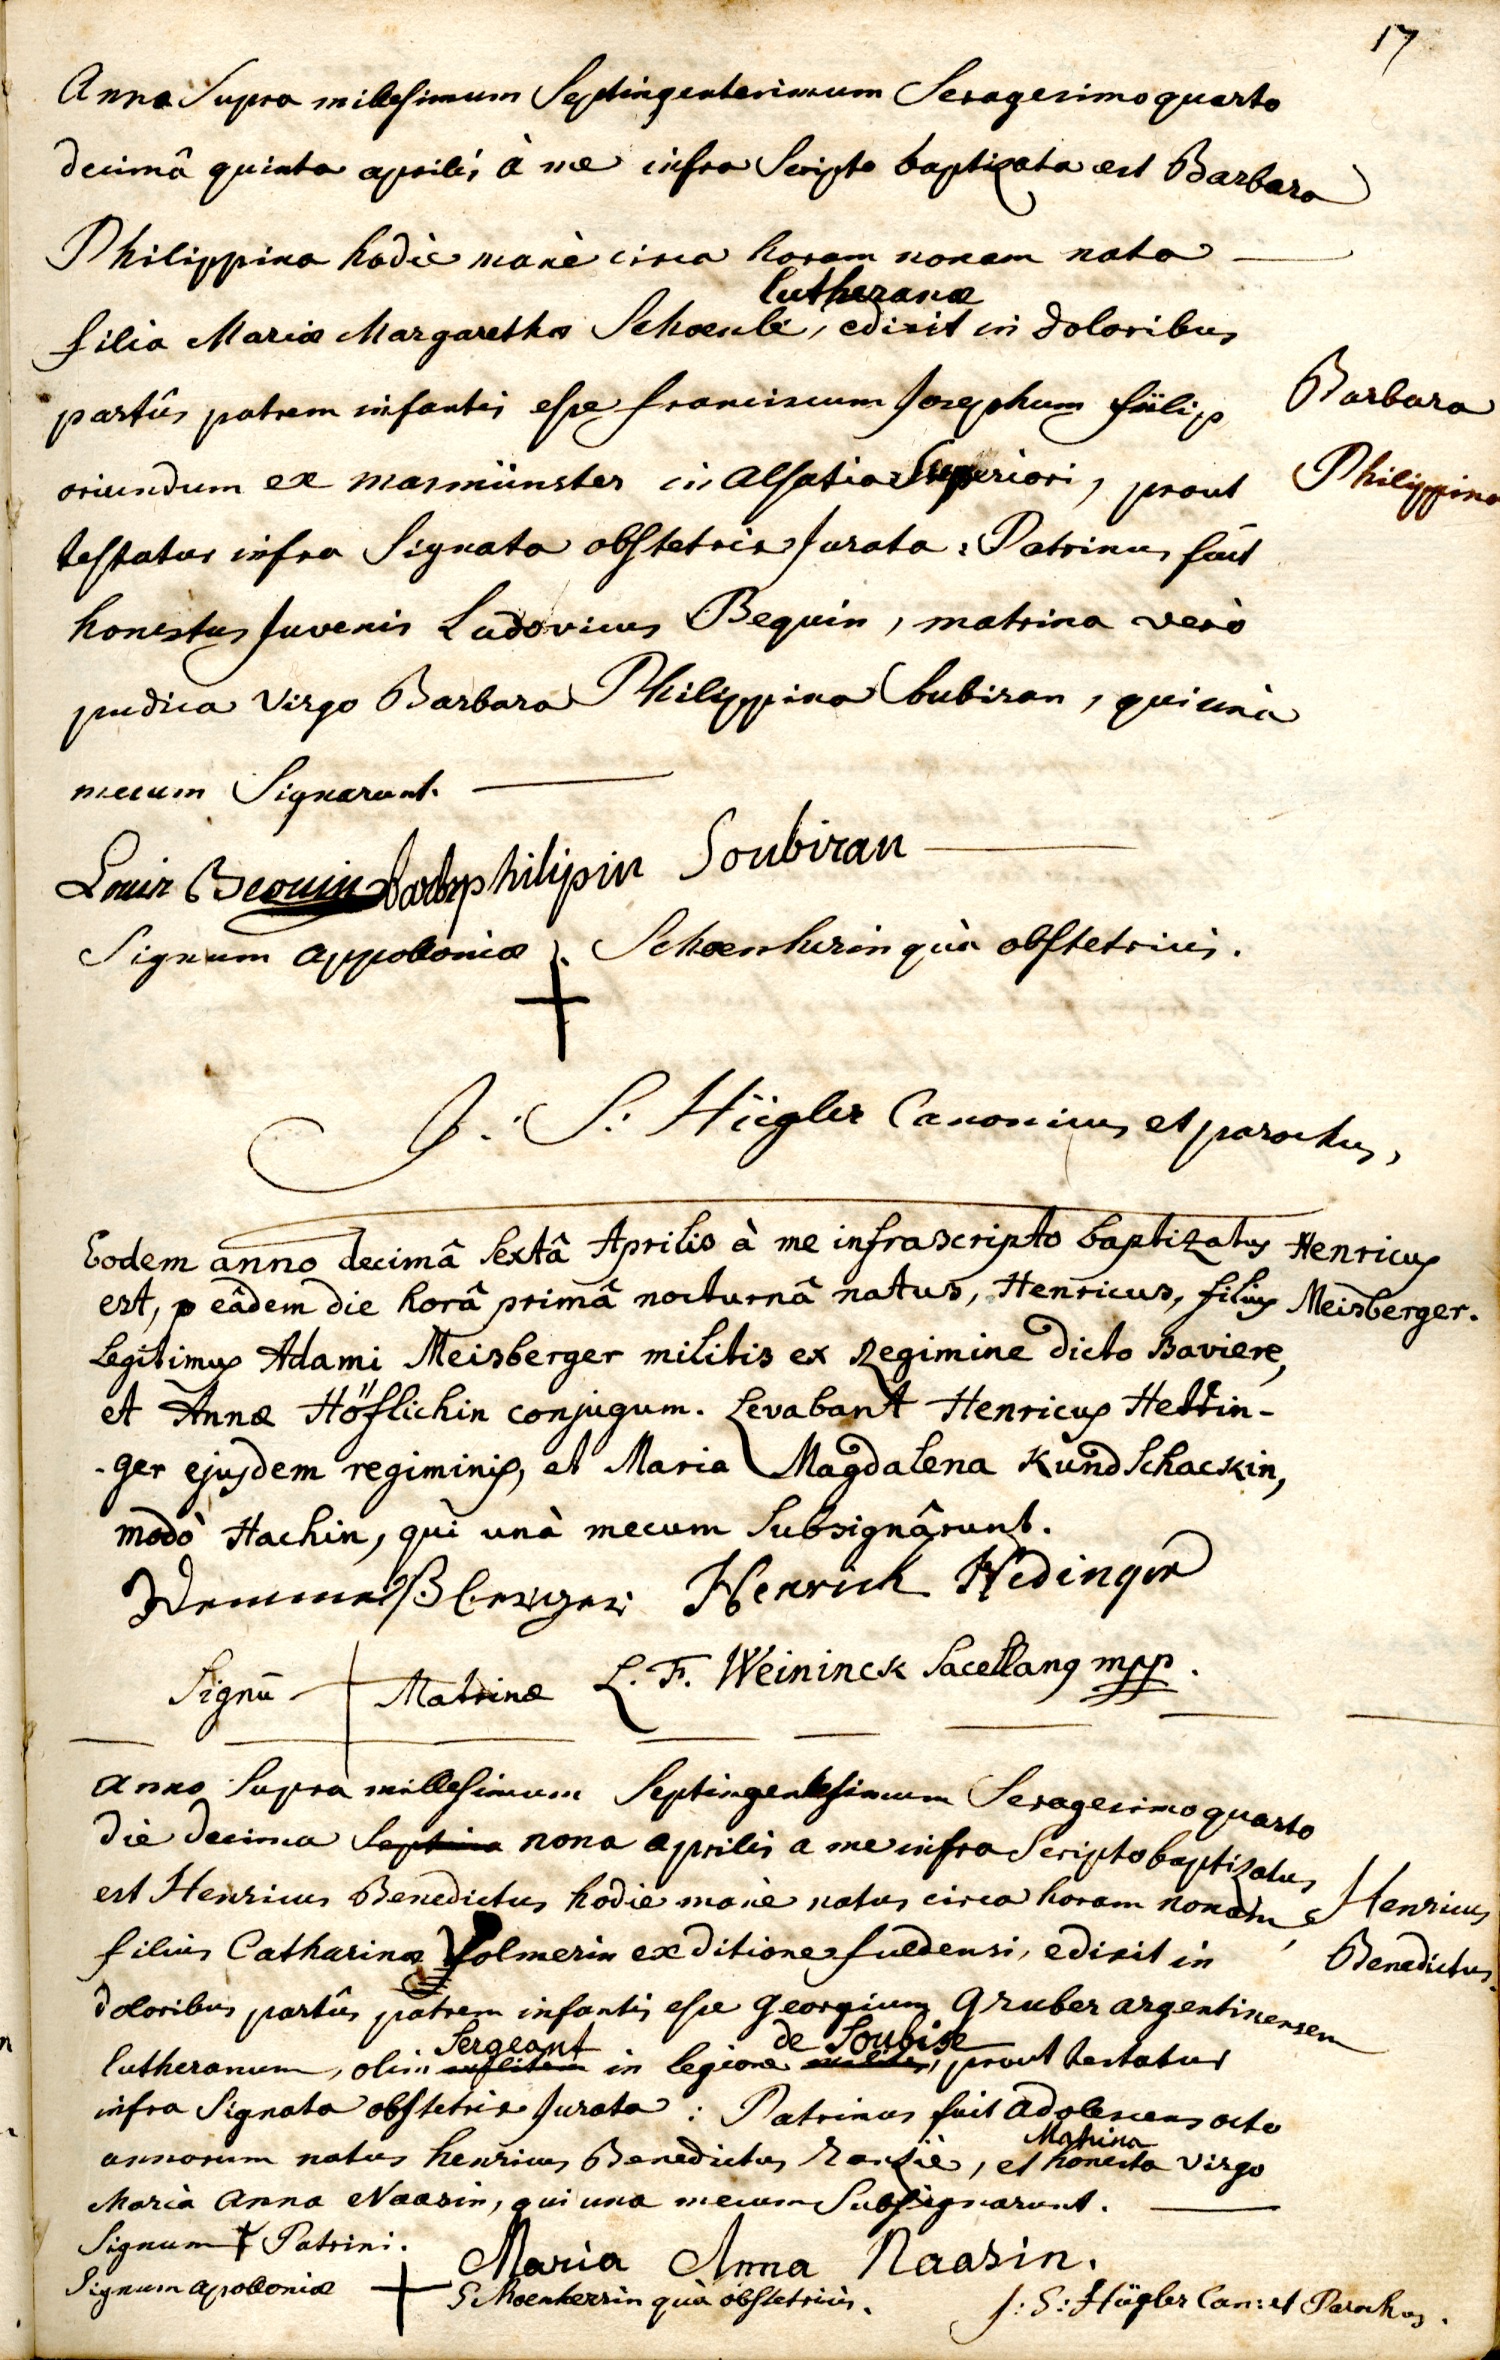 17
Anno Supra millesimum Septingentesimum Sexagesimo quarto
decimâ quinta aprilis à me infra Scripto baptizata est Barbara
Philippina hodiè manè circa horam nonam nata
lutheranæ
filia Mariæ Margarethæ Schoenle, edixit in doloribus
partûs patrem infantis esse franciscum Josephum fülip
Barbara
oriundum ex masmünster in Alsatia Superiori, prout
Philippina
testatur infra Signata obstetrix Jurata: Patrinus fuit
honestus Juvenis Ludovicus Bequin, matrina verò
pudica Virgo Barbara Philippina Subiran, qui unà
mecum Signarunt.
Louis Bequin philipin Soubiran
Signum appoloniæ Schoenherin quà obstetricis.
J: S: Hügler Canonicus et parochus,
Eodem anno decimâ Sextâ Aprilis à me infrascripto baptizatus
Henricus
est, eâdem die horâ primâ nocturnâ natus, Henricus, filius
Meisberger.
Legitimus Adami Meisberger militis ex Regimine dicto Baviere,
et Annæ Höflichin conjugum. Levabant Henricus Hettin-
-ger ejusdem regiminis, et Maria Magdalena KundSchackin,
modò Hachin, qui unà mecum Subsignârunt.
Henrich Hedinger
Signū Matrinæ L. F. Weininck Sacellanus mpp.
Anno Supra millesimum Septingentesimum Sexagesimo quarto
die decima Septima nona aprilis a me infra Scripto baptizatus
est Henricus Benedictus hodie manè natus circa horam nonam,
Henricus
filius Catharinæ Folmerin ex ditione fuldensi, edixit in
Benedictus.
doloribus partûs patrem infantis esse Georgium Gruber argentinensem
Sergeant de Soubise
lutheranum, olim militem in legione, prout testatur
infra Signata obstetrix Jurata: Patrinus fuit adolescens octo
Matrina
annorum natus henricus Benedictus, et honesta Virgo
Maria Anna Naasin, qui una mecum Subsignarunt.
Signum Patrini.
Maria Anna Naasin.
Signum apoloniæ Schoenherrin quà obstetricis.
J: S: Hügler Can: et Parochus.